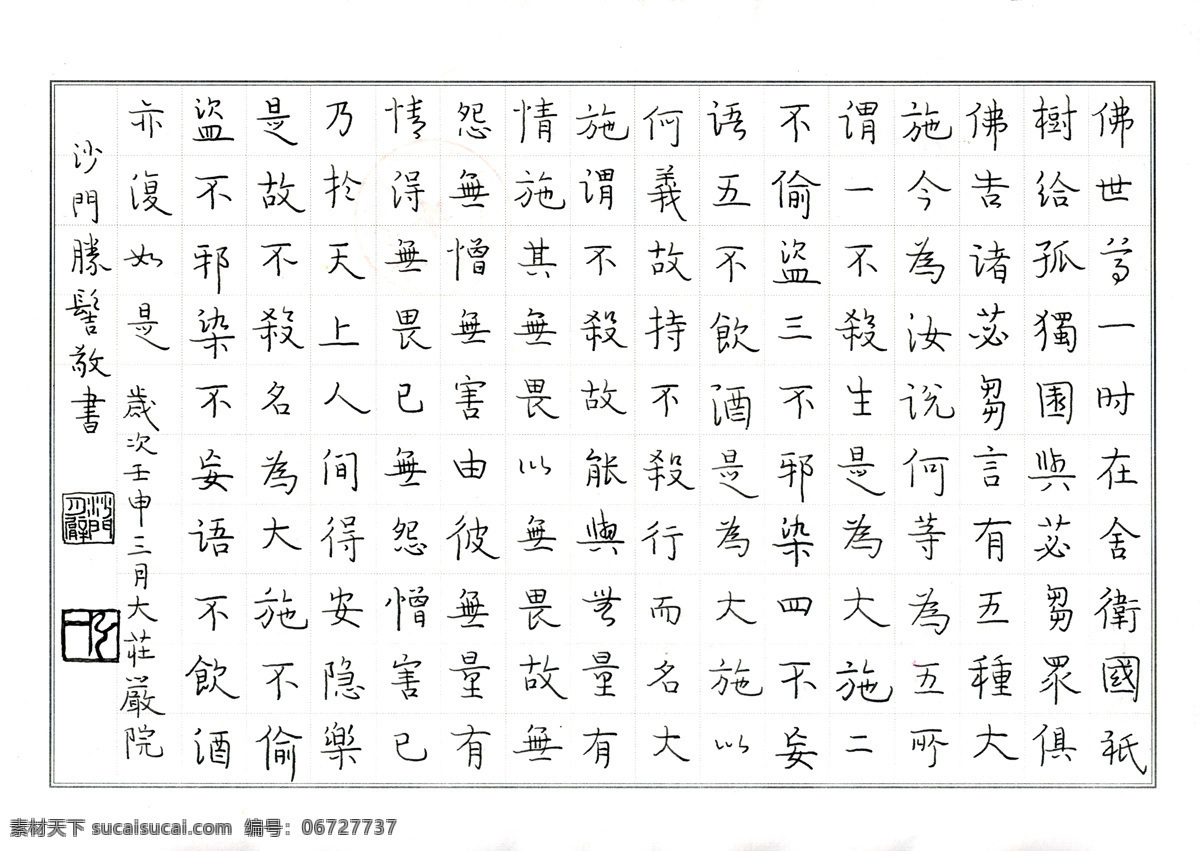 佛世尊一时在舍衛國祇
樹給孤獨園與苾芻眾俱
佛告諸苾芻言有五種大
施今為汝说何等為五所
谓一不殺生是為大施二
不偷盜三不邪染四不妄
语五不飲酒是為大施以
何義故持不殺行而名大
施谓不殺故能與無量有
情施其無畏以無畏故無
怨無憎無害由彼無量有
情得無畏已無怨憎害已
乃於天上人间得安隐樂
是故不殺名為大施不偷
盜不邪染不妄语不飲酒
亦復如是 歲次壬申三月大莊嚴院
沙門勝髻敬書
素材天下 sucaisucai.com 编号：06727737